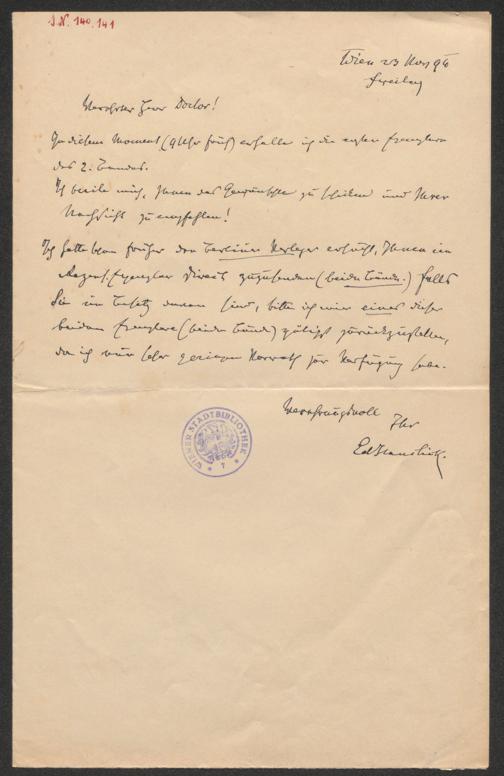 J.N. 140.141
Wien 23 Nov 94
Freitag
Verehrter Herr Doctor!
In diesem Moment (9 Uhr früh) erhalte ich die ersten Exemplare
des 2. Bandes.
Ich beeile mich, Ihnen das Gewünschte zu schicken und Ihrer
Nachsicht zu empfehlen!
Ich hatte schon früher den Berliner Verleger ersucht, Ihnen ein
Exemplar direct zuzusenden (beide Bände.) Falls
Sie im Besitz davon sind, bitte ich mir eines dieser
beiden Exemplare (beide Bände) gütigst zurückzustellen,
da ich nur sehr geringen Vorrath zur Verfügung habe.
Verehrungsvoll
Ihr
Ed Hanslick.
WIENER STADTBIBLIOTHEK